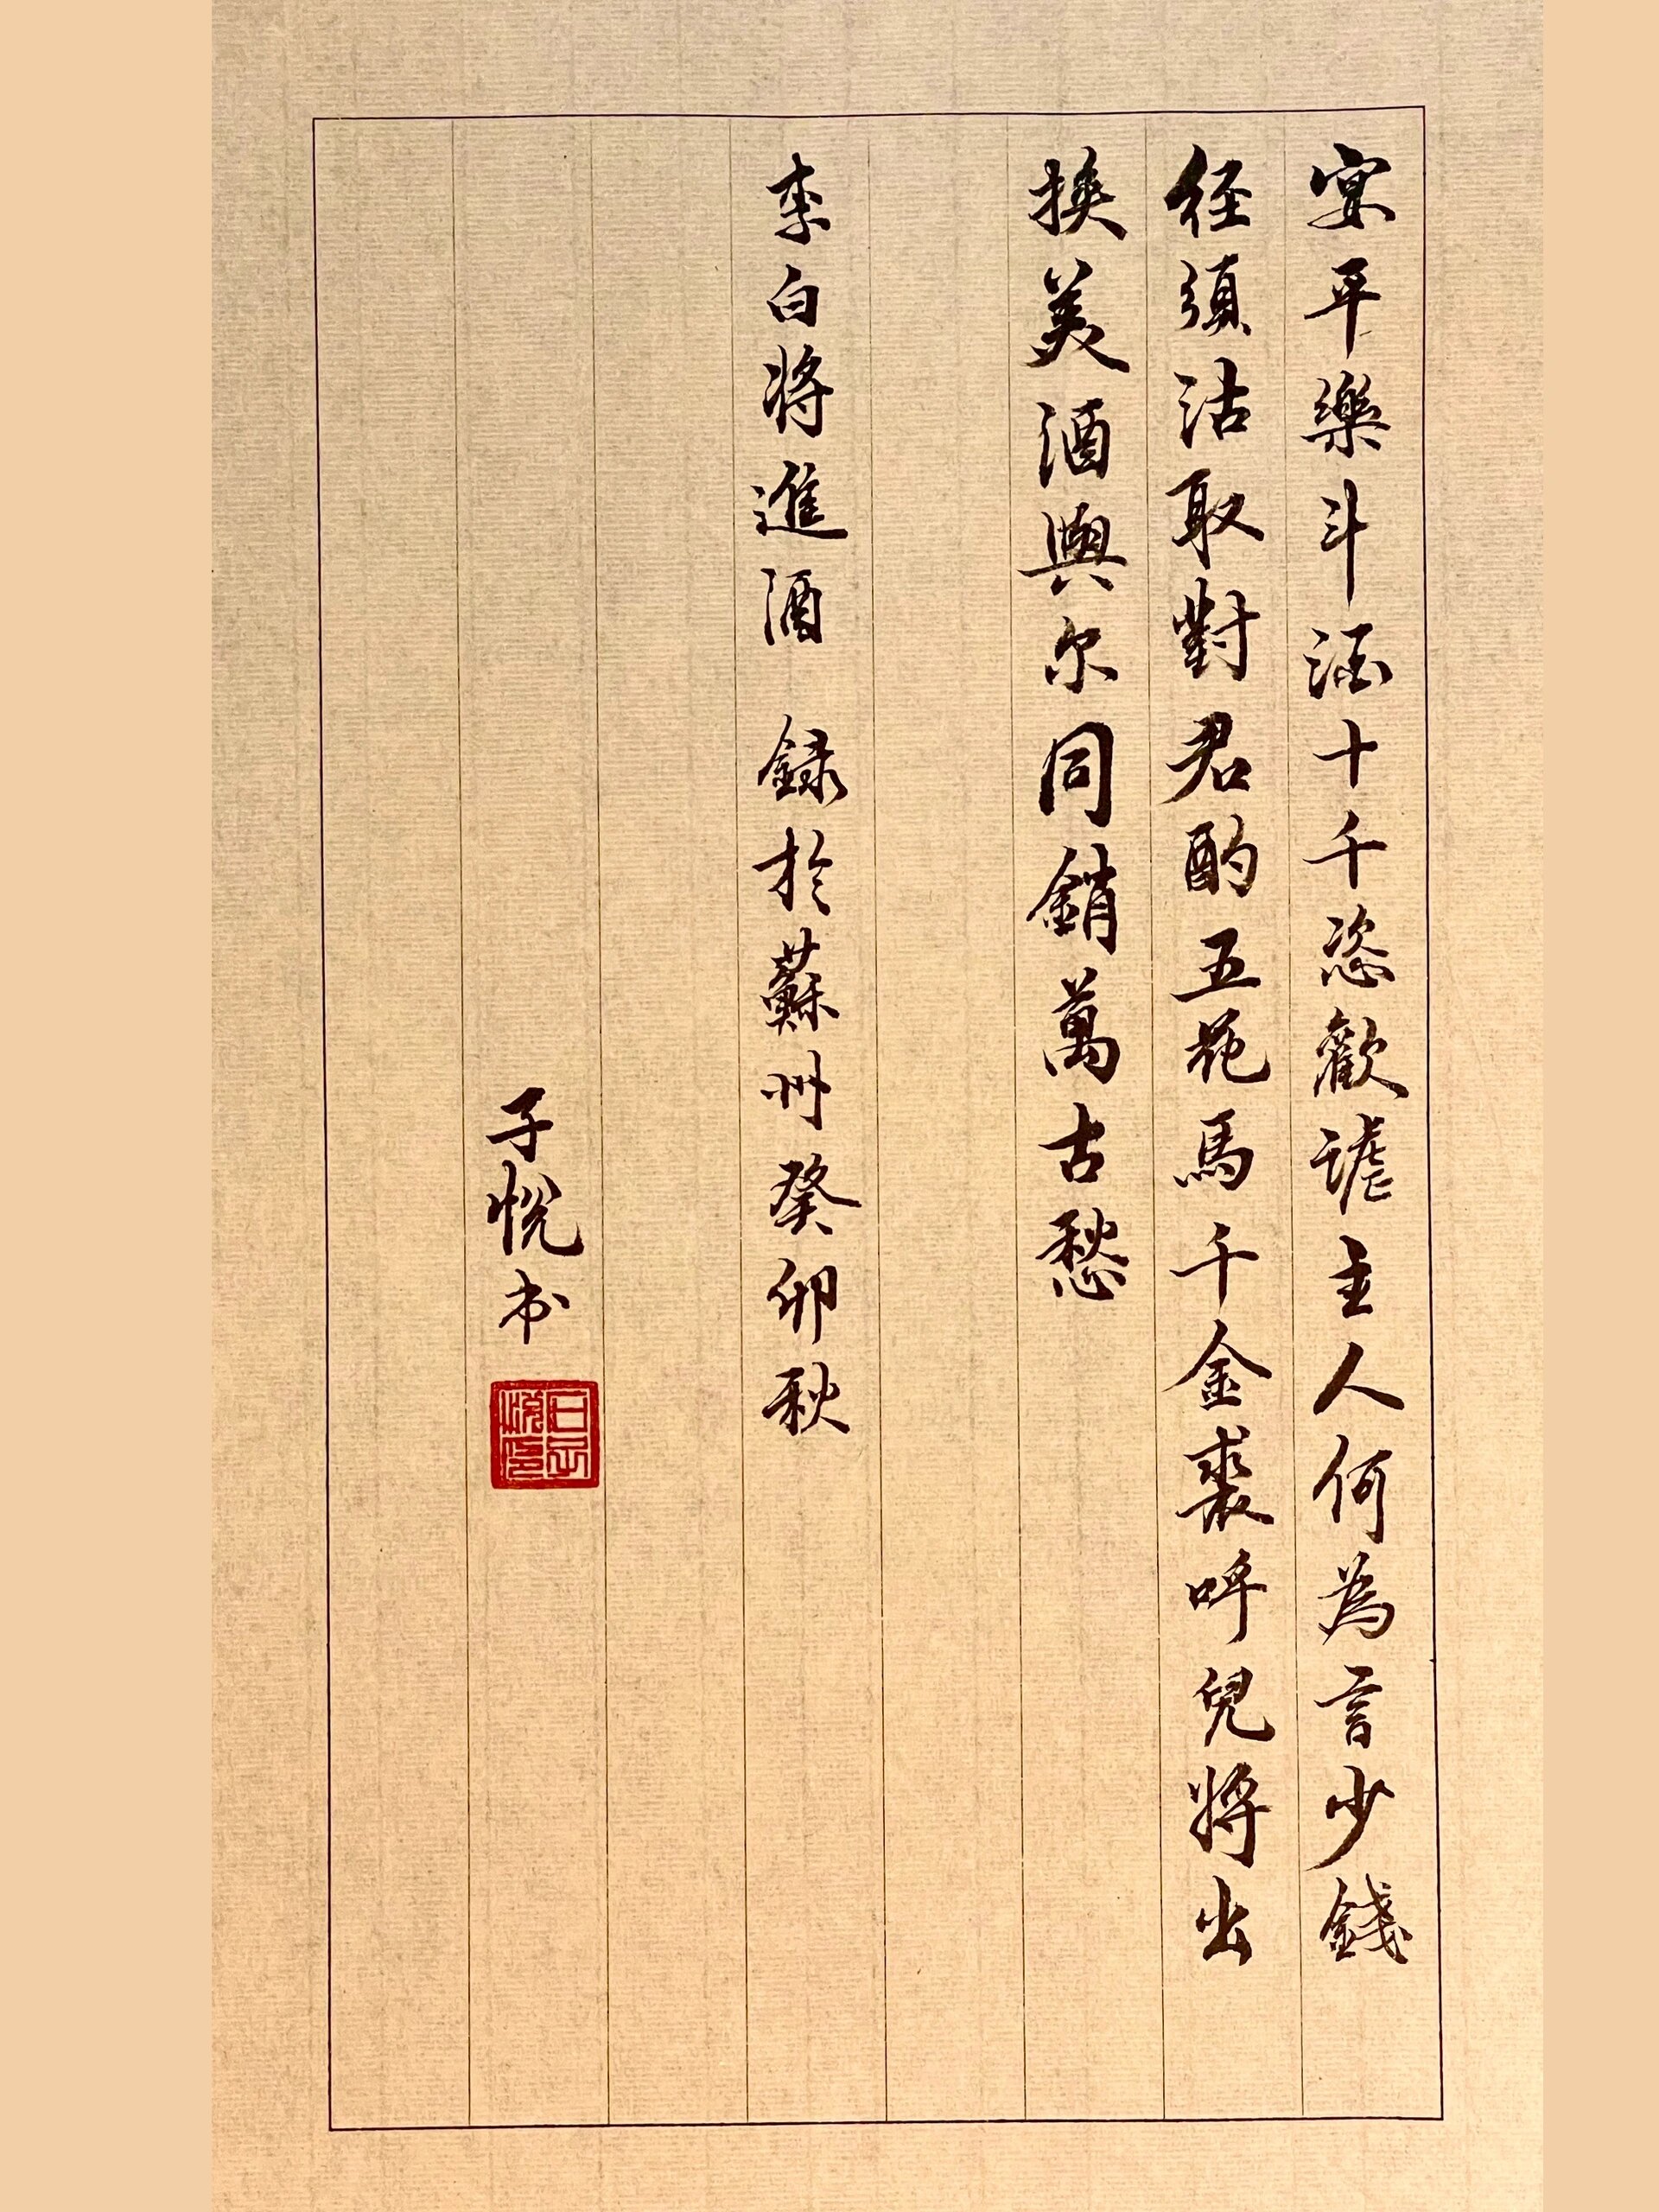 宴平樂斗酒十千恣歡謔主人何為言少錢
径須沽取對君酌五花馬千金裘呼兒將出
換美酒與尔同銷萬古愁
李白將進酒 録於蘇州癸卯秋
子悅书